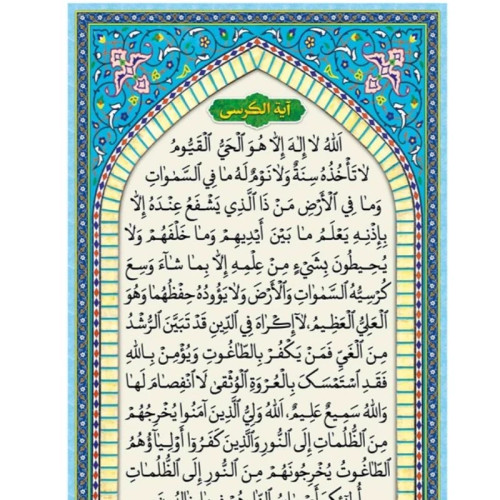 آية الكرسى
اَللّٰهُ لا اِلٰهَ اِلاّ هُوَ الْحَيُّ الْقَيُّومُ
لا تَأْخُذُهُ سِنَةٌ وَلا نَوْمٌ لَهُ ما فِي السَّمٰواتِ
وَما فِي الْأَرْضِ مَنْ ذَا الَّذِي يَشْفَعُ عِنْدَهُ اِلاّ
بِإِذْنِهِ يَعْلَمُ ما بَيْنَ أَيْدِيهِمْ وَما خَلْفَهُمْ وَلا
يُحِيطُونَ بِشَيْءٍ مِنْ عِلْمِهِ اِلاّ بِما شاءَ وَسِعَ
كُرْسِيُّهُ السَّمٰواتِ وَالْأَرْضَ وَلا يَؤُودُهُ حِفْظُهُما وَهُوَ
الْعَلِيُّ الْعَظِيمُ، لا اِكْراهَ فِي الدِّينِ قَدْ تَبَيَّنَ الرُّشْدُ
مِنَ الْغَيِّ فَمَنْ يَكْفُرْ بِالطّاغُوتِ وَيُؤْمِنْ بِاللهِ
فَقَدِ اسْتَمْسَكَ بِالْعُرْوَةِ الْوُثْقىٰ لاَ انْفِصامَ لَها
وَاللهُ سَمِيعٌ عَلِيمٌ، اَللهُ وَلِيُّ الَّذِينَ آمَنُوا يُخْرِجُهُمْ
مِنَ الظُّلُماتِ إِلَى النُّورِ وَالَّذِينَ كَفَرُوا أَوْلِياؤُهُمُ
الطّاغُوتُ يُخْرِجُونَهُمْ مِنَ النُّورِ إِلَى الظُّلُماتِ